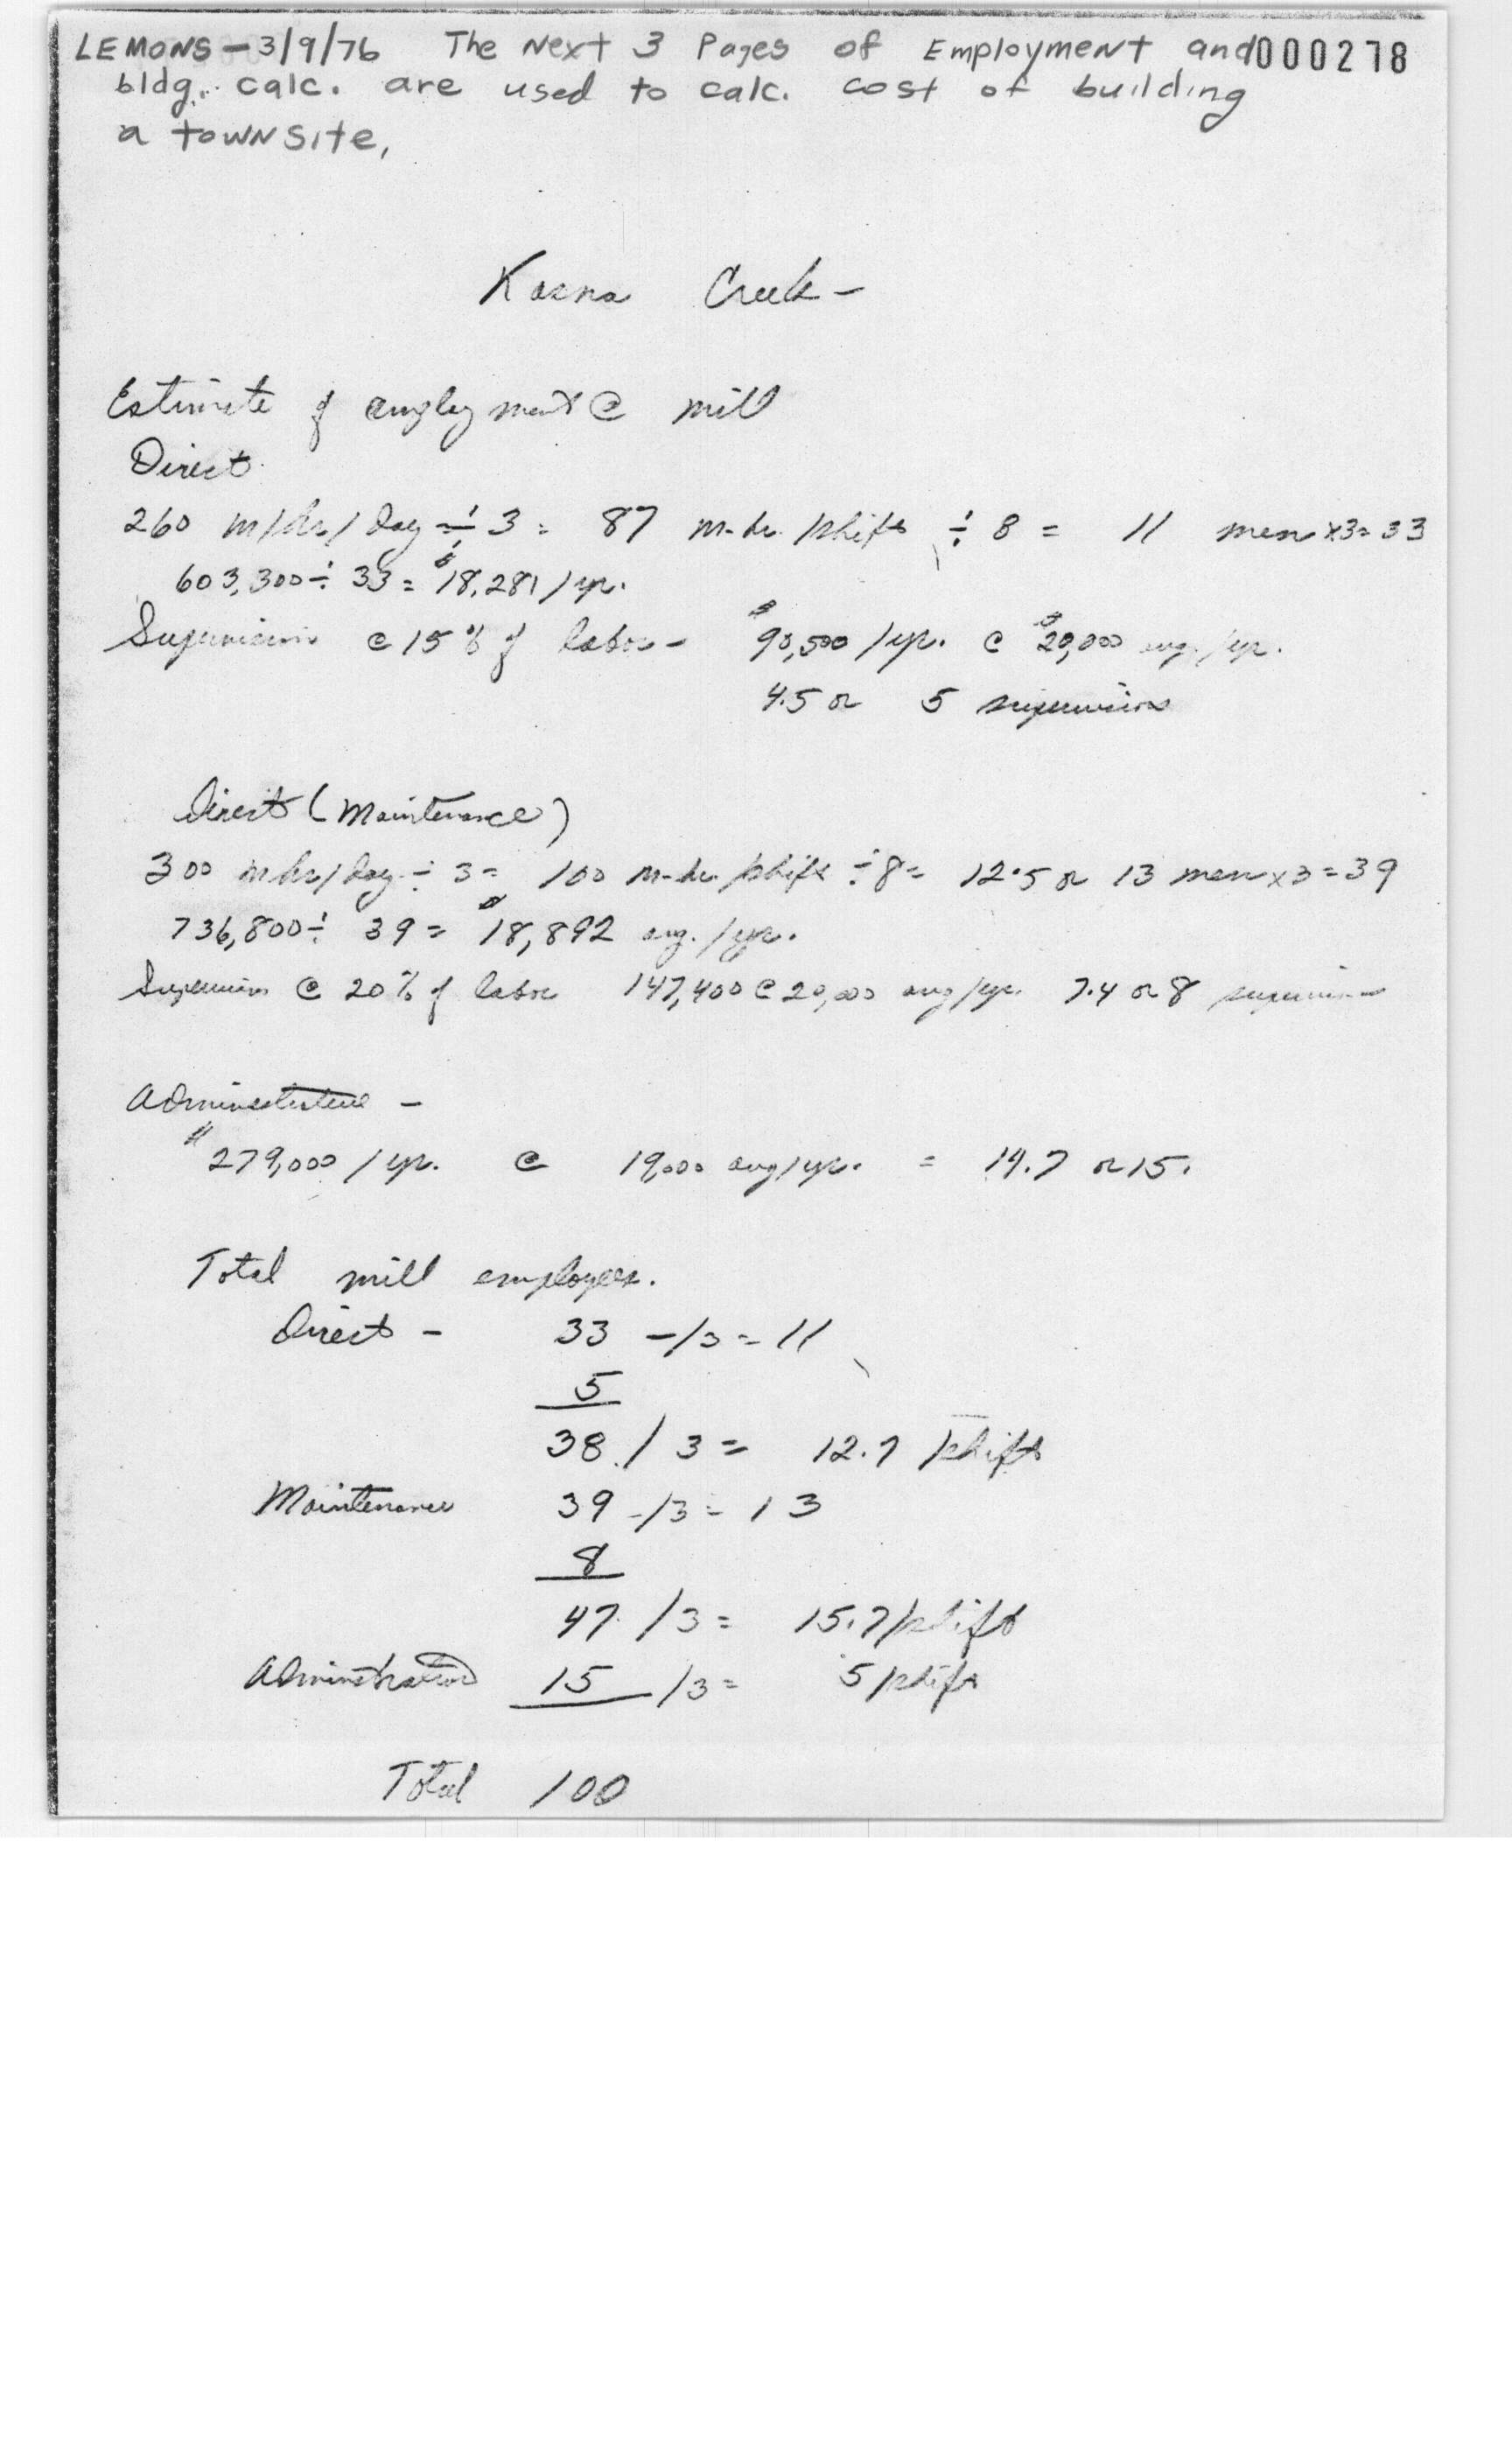 LEMONS - 3/9/76 The Next 3 Pages of Employment and 000278
bldg. calc. are used to calc. cost of building
a townsite,
Kasna Creek -
Estimate of employment @ mill
Direct
260 m/hr/day ÷ 3 = 87 m-hr/shift ÷ 8 = 11 men x3=33
603,300 ÷ 33 = $18,281/yr.
Supervision @ 15% of labor - $90,500/yr. @ $20,000 avg./yr.
4.5 or 5 supervisors
Direct (Maintenance)
300 mhr/day ÷ 3 = 100 m-hr/shift ÷ 8 = 12.5 or 13 men x3=39
736,800 ÷ 39 = $18,892 avg./yr.
Supervision @ 20% of labor 147,400 @ 20,000 avg/yr. 7.4 or 8 supervisors
Administrative -
$279,000/yr. @ 19,000 avg/yr. = 14.7 or 15.
Total mill employees.
Direct - 33 -/3 = 11
5
38 / 3 = 12.7 /shift
Maintenance 39 -/3 = 13
8
47 /3 = 15.7/shift
Administration 15 /3 = 5/shift
Total 100